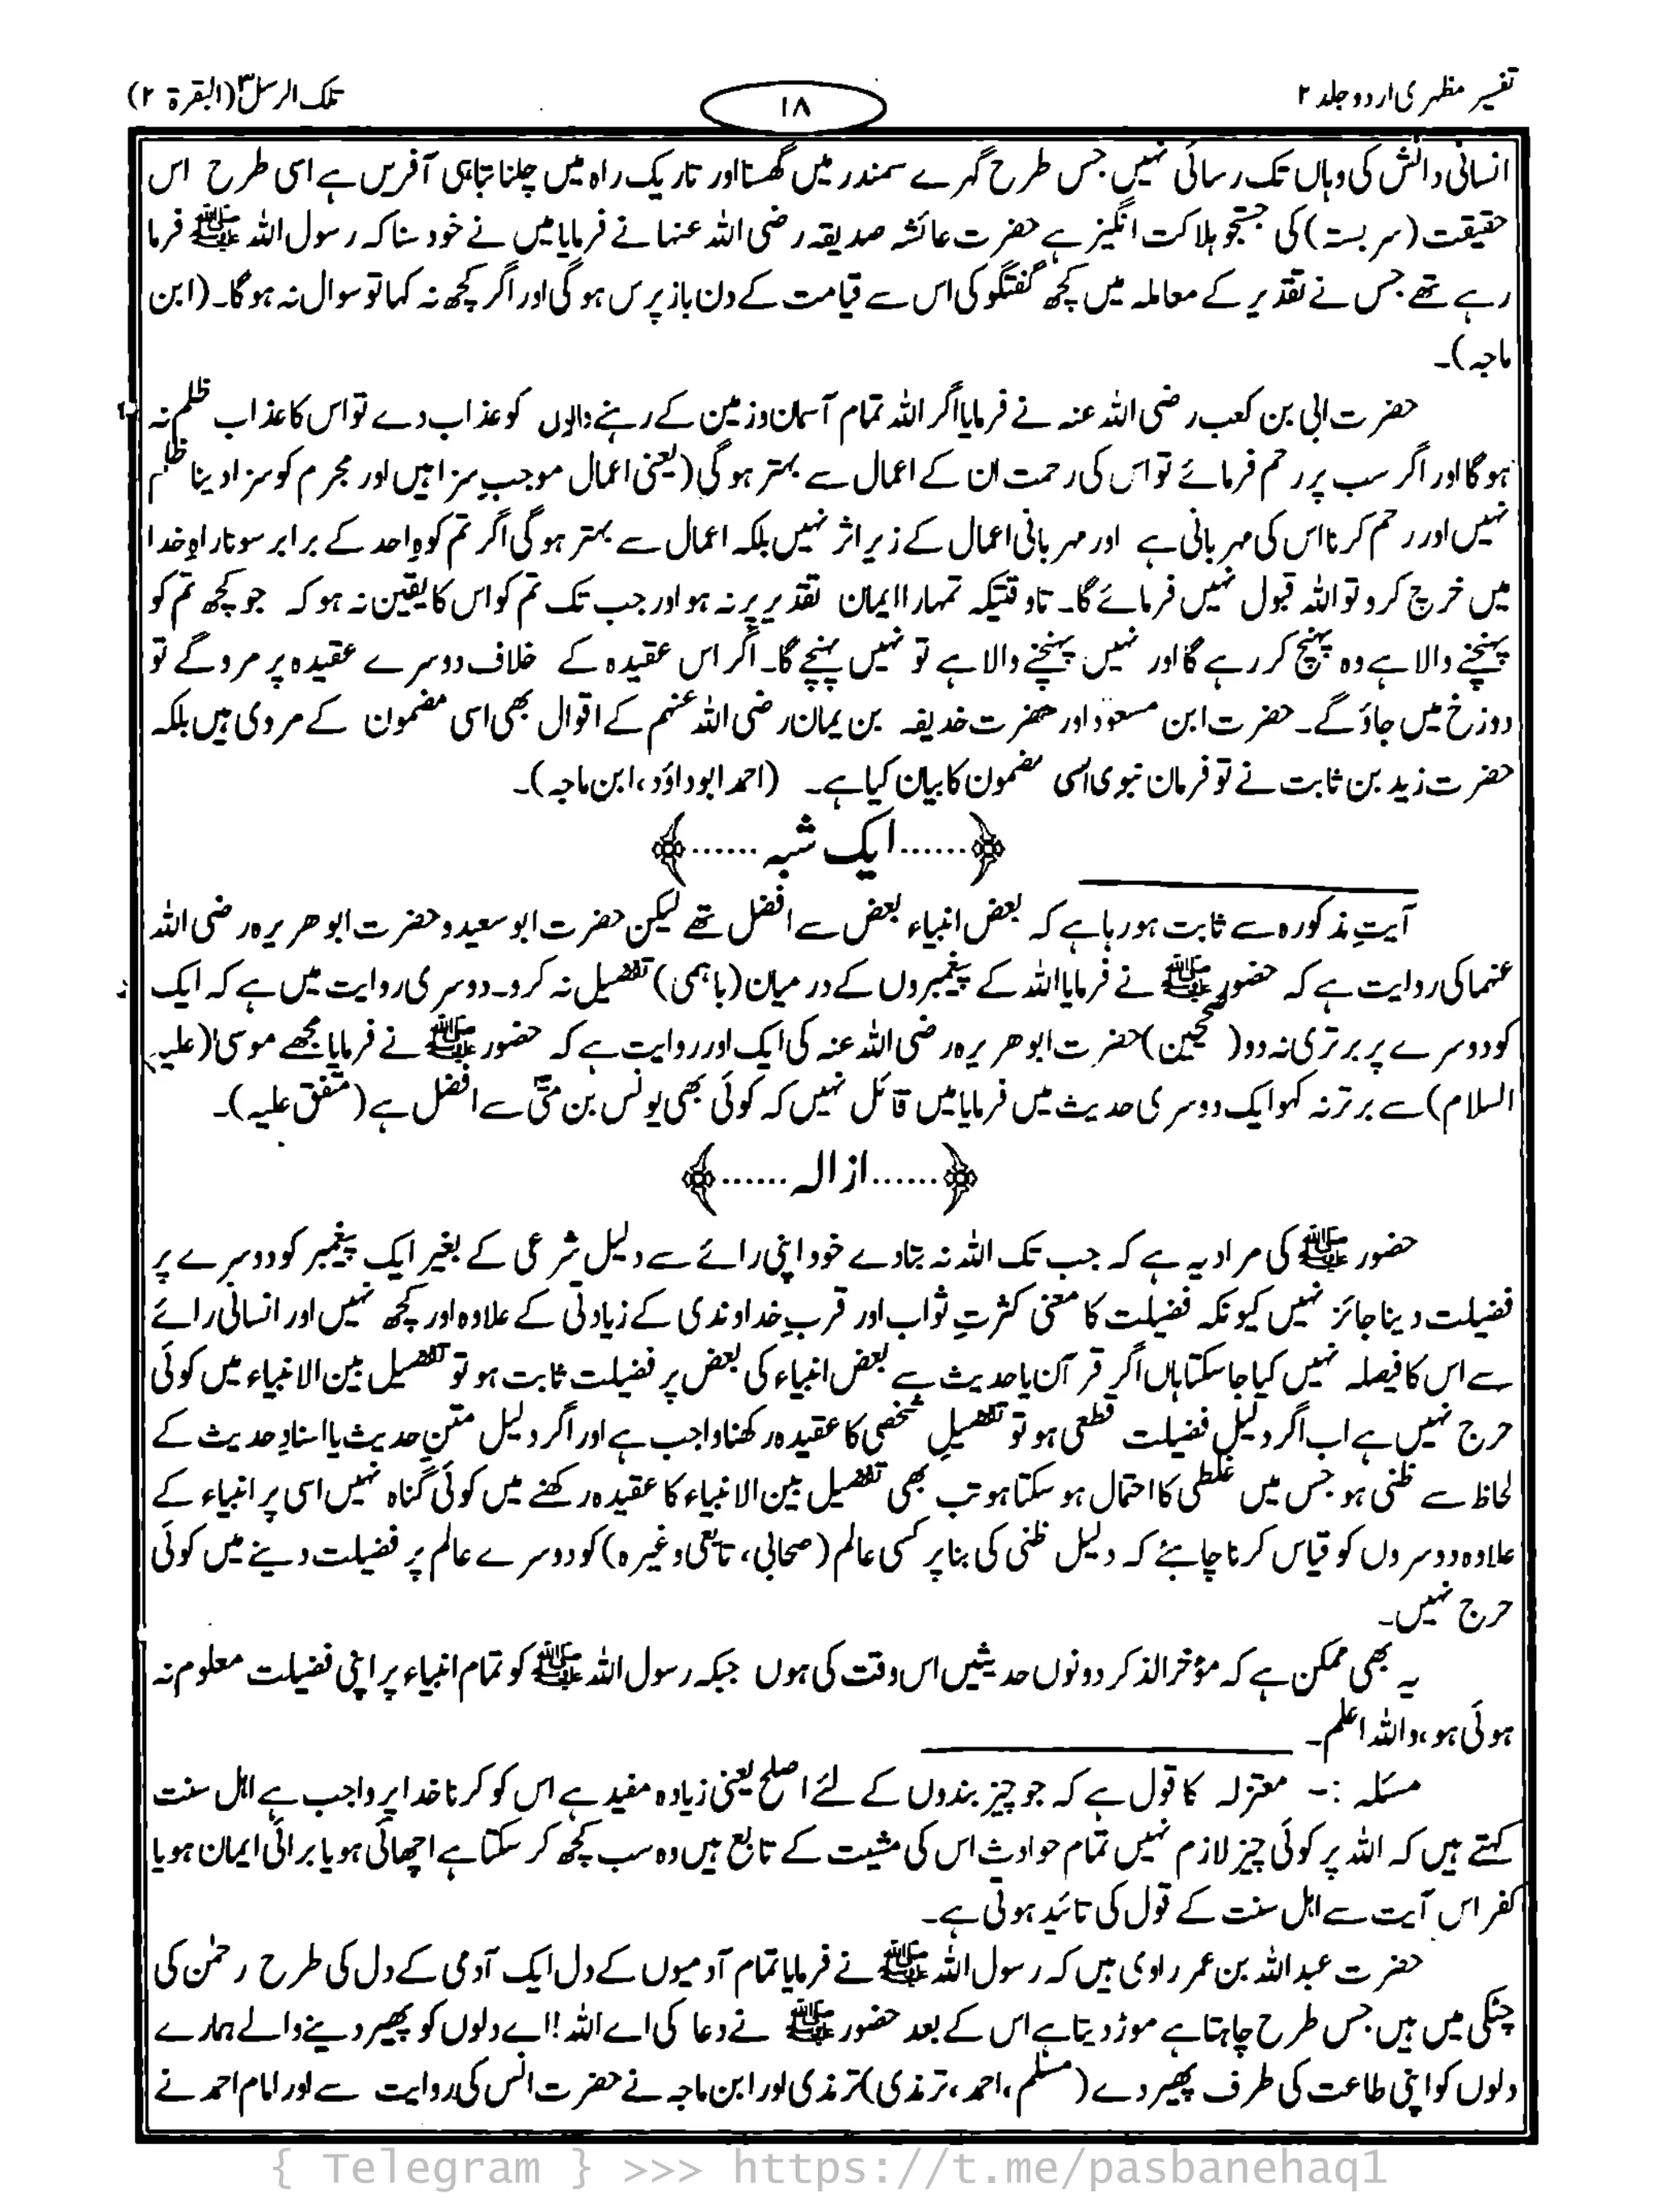 تفسیر مظہری اردو جلد ۲
۱۸
تلک الرسل۳ (البقرۃ ۲)
انسانی دانش کی وہاں تک رسائی نہیں جس طرح گہرے سمندر میں گھسنا اور تاریک راہ میں چلنا تباہی آفریں ہے اسی طرح اس
حقیقت (سر بستہ) کی جستجو ہلاکت انگیز ہے حضرت عائشہ صدیقہ رضی اللہ عنہا نے فرمایا میں نے خود سنا کہ رسول اللہ ﷺ فرما
رہے تھے جس نے تقدیر کے معاملہ میں کچھ گفتگو کی اس سے قیامت کے دن باز پرس ہوگی اور اگر کچھ نہ کہا تو سوال نہ ہوگا۔ (ابن
ماجہ)۔
حضرت ابی بن کعب رضی اللہ عنہ نے فرمایا اگر اللہ تمام آسمان و زمین کے رہنے والوں کو عذاب دے تو اس کا عذاب ظلم نہ
ہوگا اور اگر سب پر رحم فرمائے تو اس کی رحمت ان کے اعمال سے بہتر ہوگی (یعنی اعمال موجب سزا ہیں اور مجرم کو سزا دینا ظلم
نہیں اور رحم کرنا اس کی مہربانی ہے اور مہربانی اعمال کے زیر اثر نہیں بلکہ اعمال سے بہتر ہوگی اگر تم کوہِ احد کے برابر سونا راہِ خدا
میں خرچ کرو تو اللہ قبول نہیں فرمائے گا۔ تاوقتیکہ تمہارا ایمان تقدیر پر نہ ہو اور جب تک تم کو اس کا یقین نہ ہو کہ جو کچھ تم کو
پہنچنے والا ہے وہ پہنچ کر رہے گا اور نہیں پہنچنے والا ہے تو نہیں پہنچے گا۔ اگر اس عقیدہ کے خلاف دوسرے عقیدہ پر مرو گے تو
دوزخ میں جاؤ گے۔ حضرت ابن مسعودؓ اور حضرت خدیفہ بن یمان رضی اللہ عنہم کے اقوال بھی اسی مضمون کے مروی ہیں بلکہ
حضرت زید بن ثابت نے تو فرمان نبوی اسی مضمون کا بیان کیا ہے۔ (احمد ابو داؤد، ابن ماجہ)۔
﴿......ایک شبہ......﴾
آیتِ مذکورہ سے ثابت ہو رہا ہے کہ بعض انبیاء بعض سے افضل تھے لیکن حضرت ابو سعید و حضرت ابو ھریرہ رضی اللہ
عنہما کی روایت ہے کہ حضور ﷺ نے فرمایا اللہ کے پیغمبروں کے درمیان (باہمی) تفضیل نہ کرو۔ دوسری روایت میں ہے کہ ایک
کو دوسرے پر برتری نہ دو (صحیحین) حضرت ابو ھریرہ رضی اللہ عنہ کی ایک اور روایت ہے کہ حضور ﷺ نے فرمایا مجھے موسیٰ (علیہ
السلام) سے برتر نہ کہو ایک دوسری حدیث میں فرمایا میں قائل نہیں کہ کوئی بھی یونس بن متیؑ سے افضل ہے (متفق علیہ)۔
﴿......ازالہ......﴾
حضور ﷺ کی مراد یہ ہے کہ جب تک اللہ نہ بتادے خود اپنی رائے سے دلیل شرعی کے بغیر ایک پیغمبر کو دوسرے پر
فضیلت دینا جائز نہیں کیونکہ فضیلت کا معنی کثرتِ ثواب اور قربِ خداوندی کے زیادتی کے علاوہ اور کچھ نہیں اور انسانی رائے
سے اس کا فیصلہ نہیں کیا جا سکتا ہاں اگر قرآن یا حدیث سے بعض انبیاء کی بعض پر فضیلت ثابت ہو تو تفضیل بین الانبیاء میں کوئی
حرج نہیں ہے اب اگر دلیل فضیلت قطعی ہو تو تفضیلِ شخصی کا عقیدہ رکھنا واجب ہے اور اگر دلیل متنِ حدیث یا اسنادِ حدیث کے
لحاظ سے ظنی ہو جس میں غلطی کا احتمال ہو سکتا ہو تب بھی تفضیل بین الانبیاء کا عقیدہ رکھنے میں کوئی گناہ نہیں اسی پر انبیاء کے
علاوہ دوسروں کو قیاس کرنا چاہئے کہ دلیل ظنی کی بنا پر کسی عالم (صحابی، تابعی وغیرہ) کو دوسرے عالم پر فضیلت دینے میں کوئی
حرج نہیں۔
یہ بھی ممکن ہے کہ مؤخر الذکر دونوں حدیثیں اس وقت کی ہوں جبکہ رسول اللہ ﷺ کو تمام انبیاء پر اپنی فضیلت معلوم نہ
ہوئی ہو، واللہ اعلم۔
مسئلہ :- معتزلہ کا قول ہے کہ جو چیز بندوں کے لئے اصلح یعنی زیادہ مفید ہے اس کو کرنا خدا پر واجب ہے اہل سنت
کہتے ہیں کہ اللہ پر کوئی چیز لازم نہیں تمام حوادث اس کی مشیت کے تابع ہیں وہ سب کچھ کر سکتا ہے اچھائی ہو یا برائی ایمان ہو یا
کفر اس آیت سے اہل سنت کے قول کی تائید ہوتی ہے۔
حضرت عبد اللہ بن عمر راوی ہیں کہ رسول اللہ ﷺ نے فرمایا تمام آدمیوں کے دل ایک آدمی کے دل کی طرح رحمٰن کی
چٹکی میں ہیں جس طرح چاہتا ہے موڑ دیتا ہے اس کے بعد حضور ﷺ نے دعا کی اے اللہ! اے دلوں کو پھیر دینے والے ہمارے
دلوں کو اپنی طاعت کی طرف پھیر دے (مسلم، احمد، ترمذی) ترمذی اور ابن ماجہ نے حضرت انس کی روایت سے اور امام احمد نے
{ Telegram } >>> https://t.me/pasbanehaq1